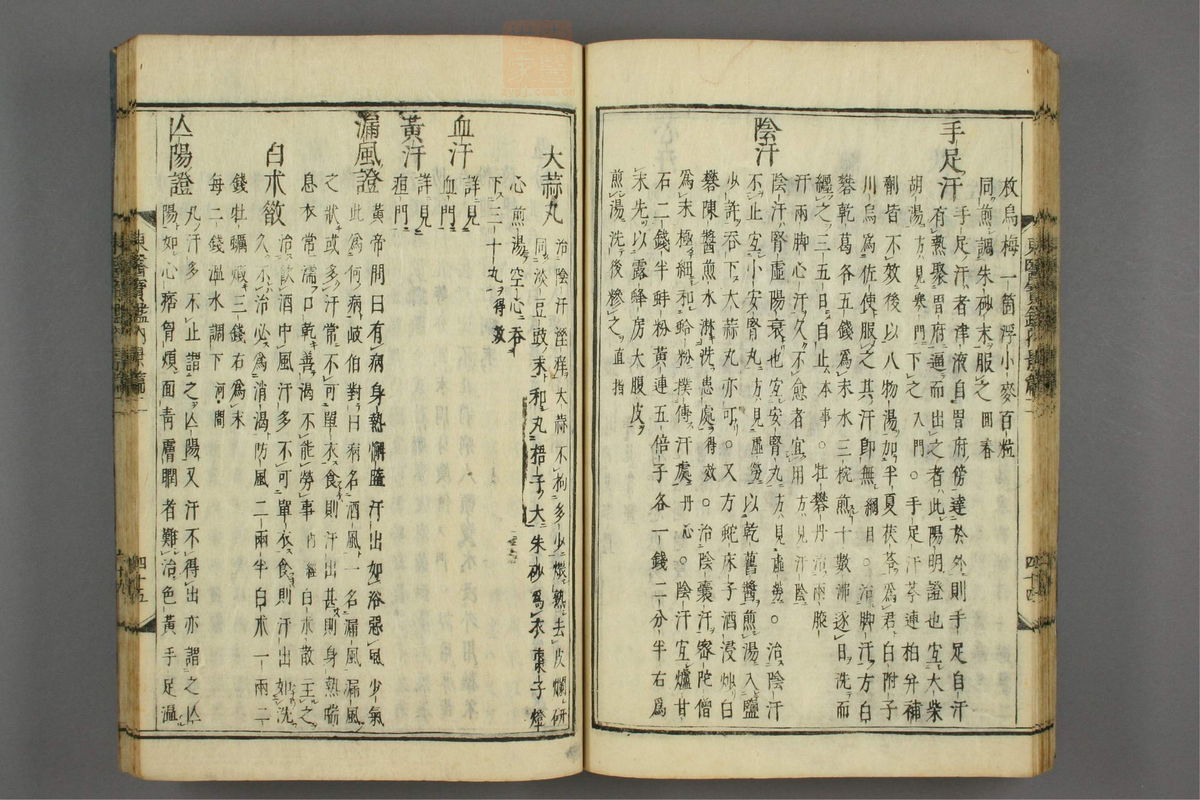 枚烏梅一箇浮小麥百粒
同煎調朱砂末服之回春
手足汗
手足汗者津液自胃府傍達於外則手足自汗
有熱聚胃府逼而出之者此陽明證也宜大柴
胡湯方見寒門下之入門○手足汗芩連柏并補
劑皆不效後以八物湯加半夏茯苓爲君白附子
川烏爲佐使服之其汗卽無綱目○治脚汗方白
礬乾葛各五錢爲末水三椀煎十數沸逐日洗而
纏之三五日自止本事○牡礬丹治兩脚
汗兩脚心汗久不愈者宜用方見汗陰
陰汗
陰汗腎虛陽衰也宜安腎丸方見虛勞○治陰汗
不止宜小安腎丸方見虛勞以乾舊醬煎湯入鹽
少許吞下大蒜丸亦可○又方蛇床子酒浸炒白
礬陳醬煎水淋洗患處得效○治陰囊汗密陀僧
爲末極細和蛤粉撲傳汗處丹心○陰汗宜爐甘
石二錢半蚌粉黃連五倍子各一錢二分半右爲
末先以露蜂房大腹皮
煎湯洗後糝之直指
大蒜丸
治陰汗溼痒大蒜不拘多少煨熟去皮爛研
同淡豆豉末和丸梧子大朱砂爲衣棗子燈
心煎湯空心吞
下三十丸得效
血汗
詳見
血門
黃汗
詳見
疸門
漏風證
黃帝問曰有病身熱懈墮汗出如浴惡風少氣
此爲何病岐伯對曰病名酒風一名漏風漏風
之狀或多汗常不可單衣食則汗出甚則身熱喘
息衣常濡口乾善渴不能勞事內經白朮散主之
白朮散
治飲酒中風汗多不可單衣食則汗出如洗
久不治必爲消渴防風二兩半白朮一兩二
錢牡蠣煆三錢右爲末
每二錢溫水調下河間
亾陽證
凡汗多不止謂之亾陽又汗不得出亦謂之亾
陽如心痞胷煩面靑膚瞤者難治色黃手足溫
東醫寶鑑內景篇二
四十四
東醫寶鑑內景篇二
四十五